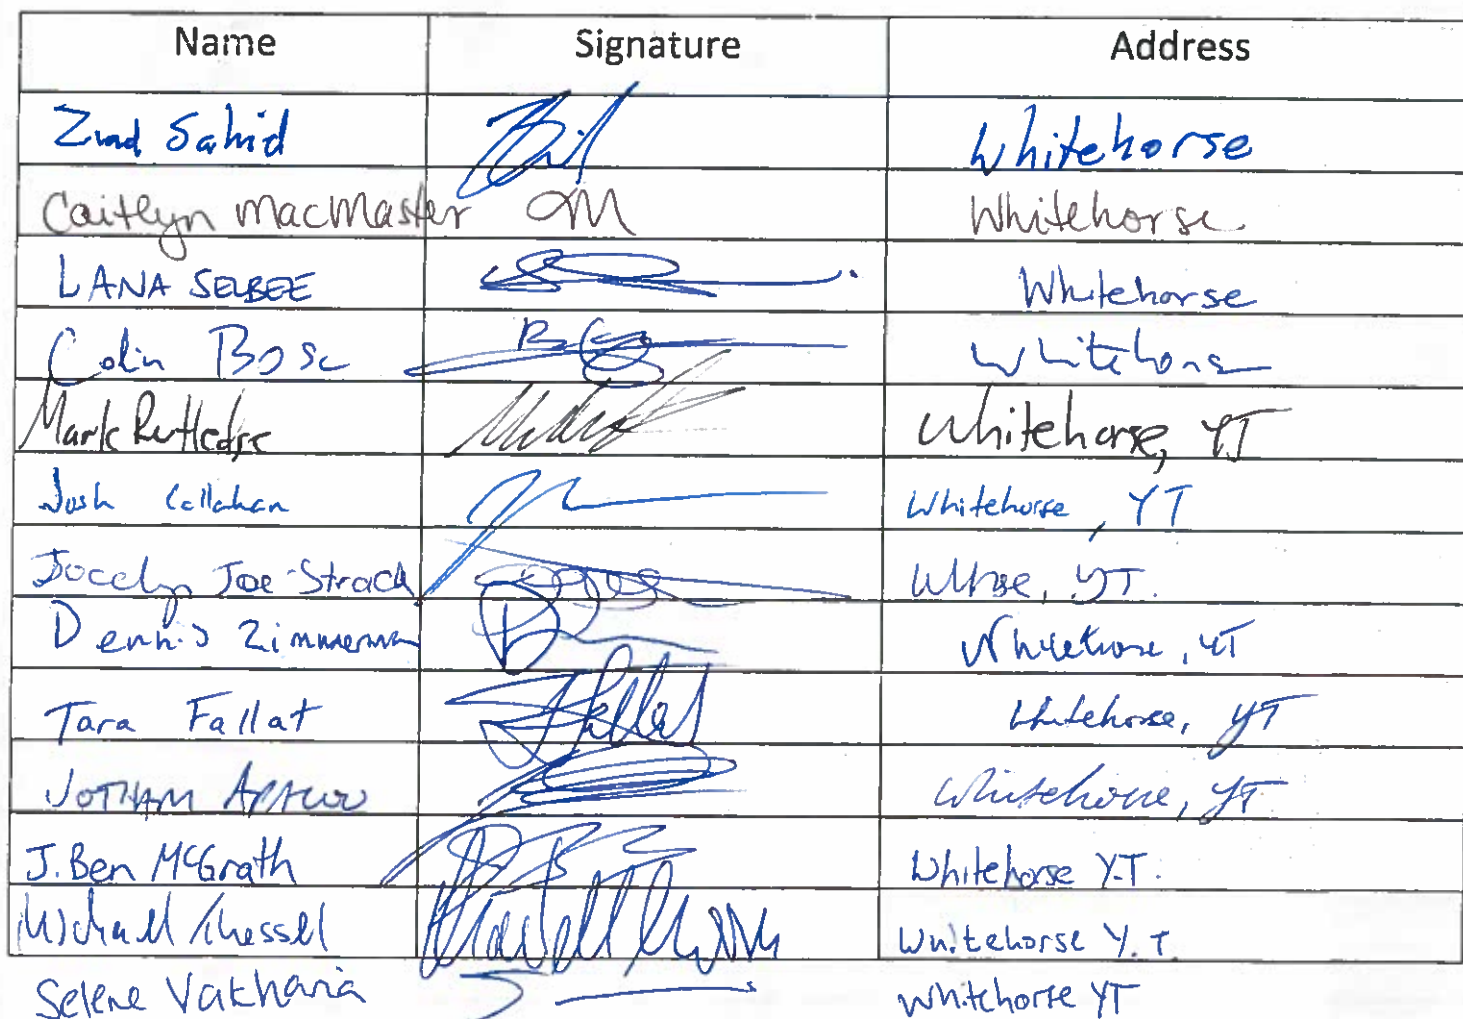 Name Signature Address
Ziad Sahid Whitehorse
Caitlyn MacMaster CM Whitehorse
LANA SELBEE Whitehorse
Colin Bosc Whitehorse
Mark Rutledge Whitehorse, YT
Josh Callahan Whitehorse, YT
Jocelyn Joe-Strack Whse, YT.
Dennis Zimmerman Whitehorse, YT
Tara Fallat Whitehorse, YT
JOTHAM Whitehorse, YT
J. Ben McGrath Whitehorse Y.T.
Michael Whitehorse Y.T.
Selene Vakharia Whitehorse YT